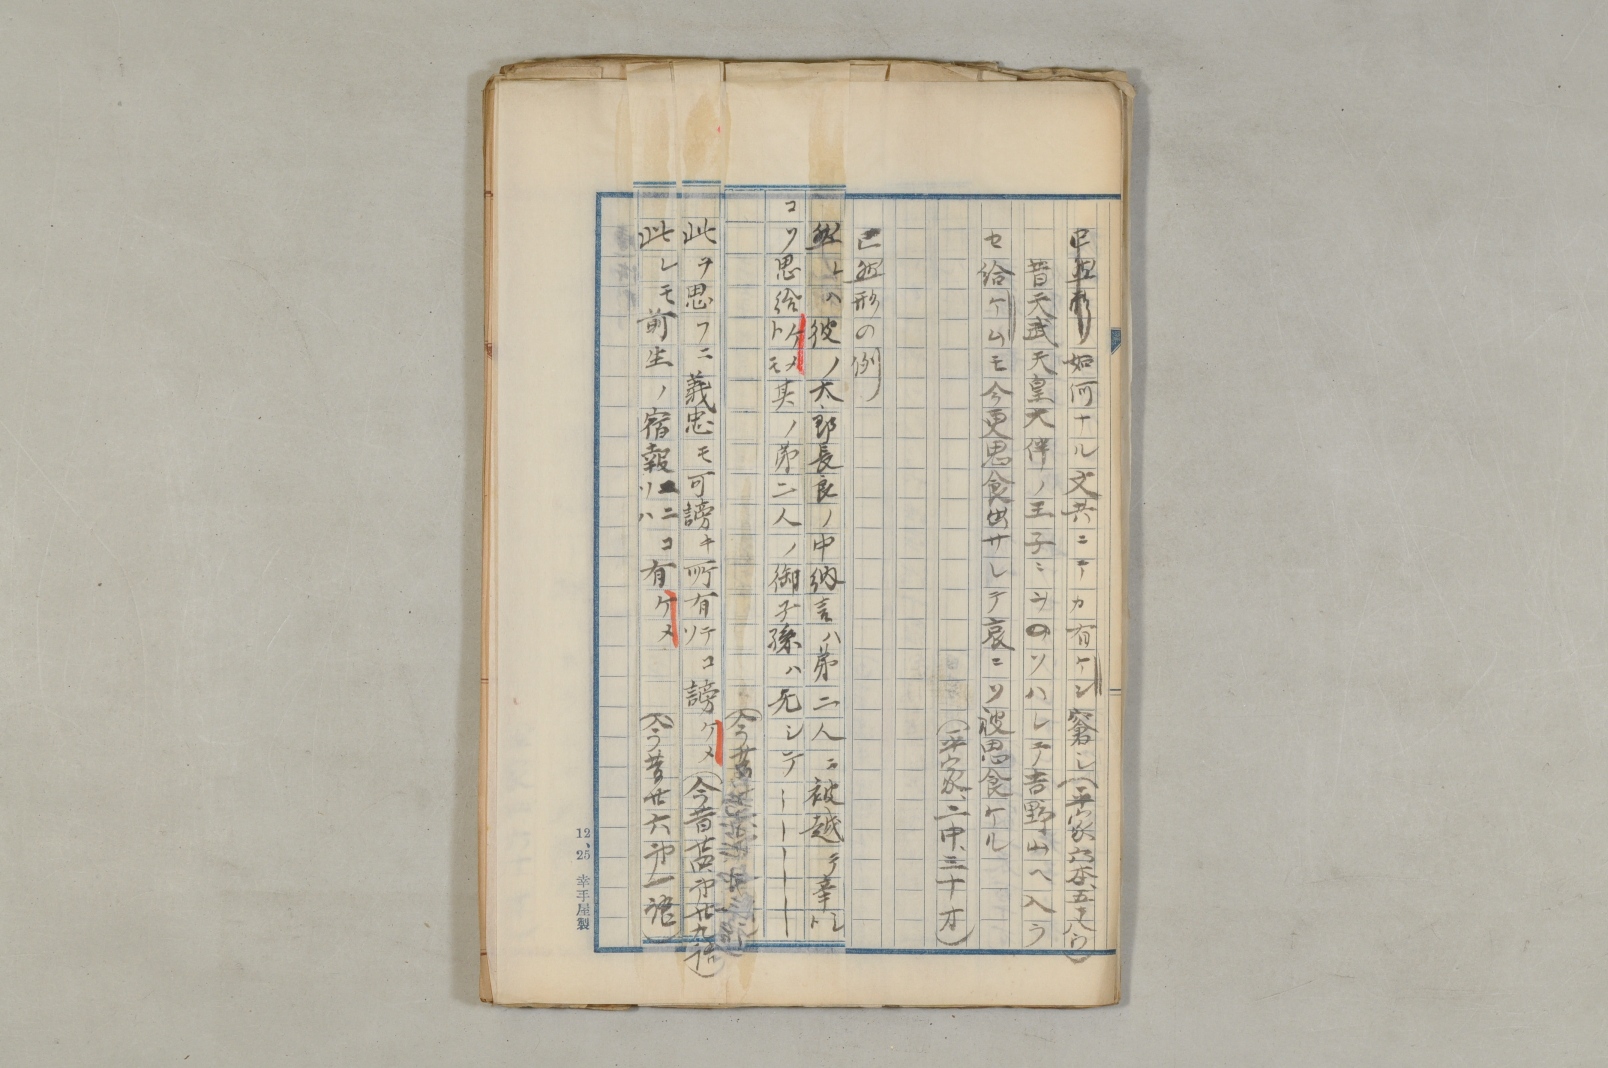 如何ナル文共ニテカ有ケン審シ(平家
昔天武天皇大伴ノ王子ニヲソハレテ吉野山ヘ入ラ
セ給ケムモ今更思食出サレテ哀ニソ被思食ケル
(平家、二中、三十オ)
已然形の例
然レハ彼ノ太郎長良ノ中納言ハ弟二人ニ被越テ辛ト
コソ思給ケメトモ其ノ弟二人ノ御子孫ハ无シテ
(今昔
此ヲ思フニ義忠モ可謗キ所有テコソ謗ケメ(今昔廿四第廿九語)
此レモ前生ノ宿報ニコソハ有ケメ(今昔廿六第一語)
12、25 幸手屋製